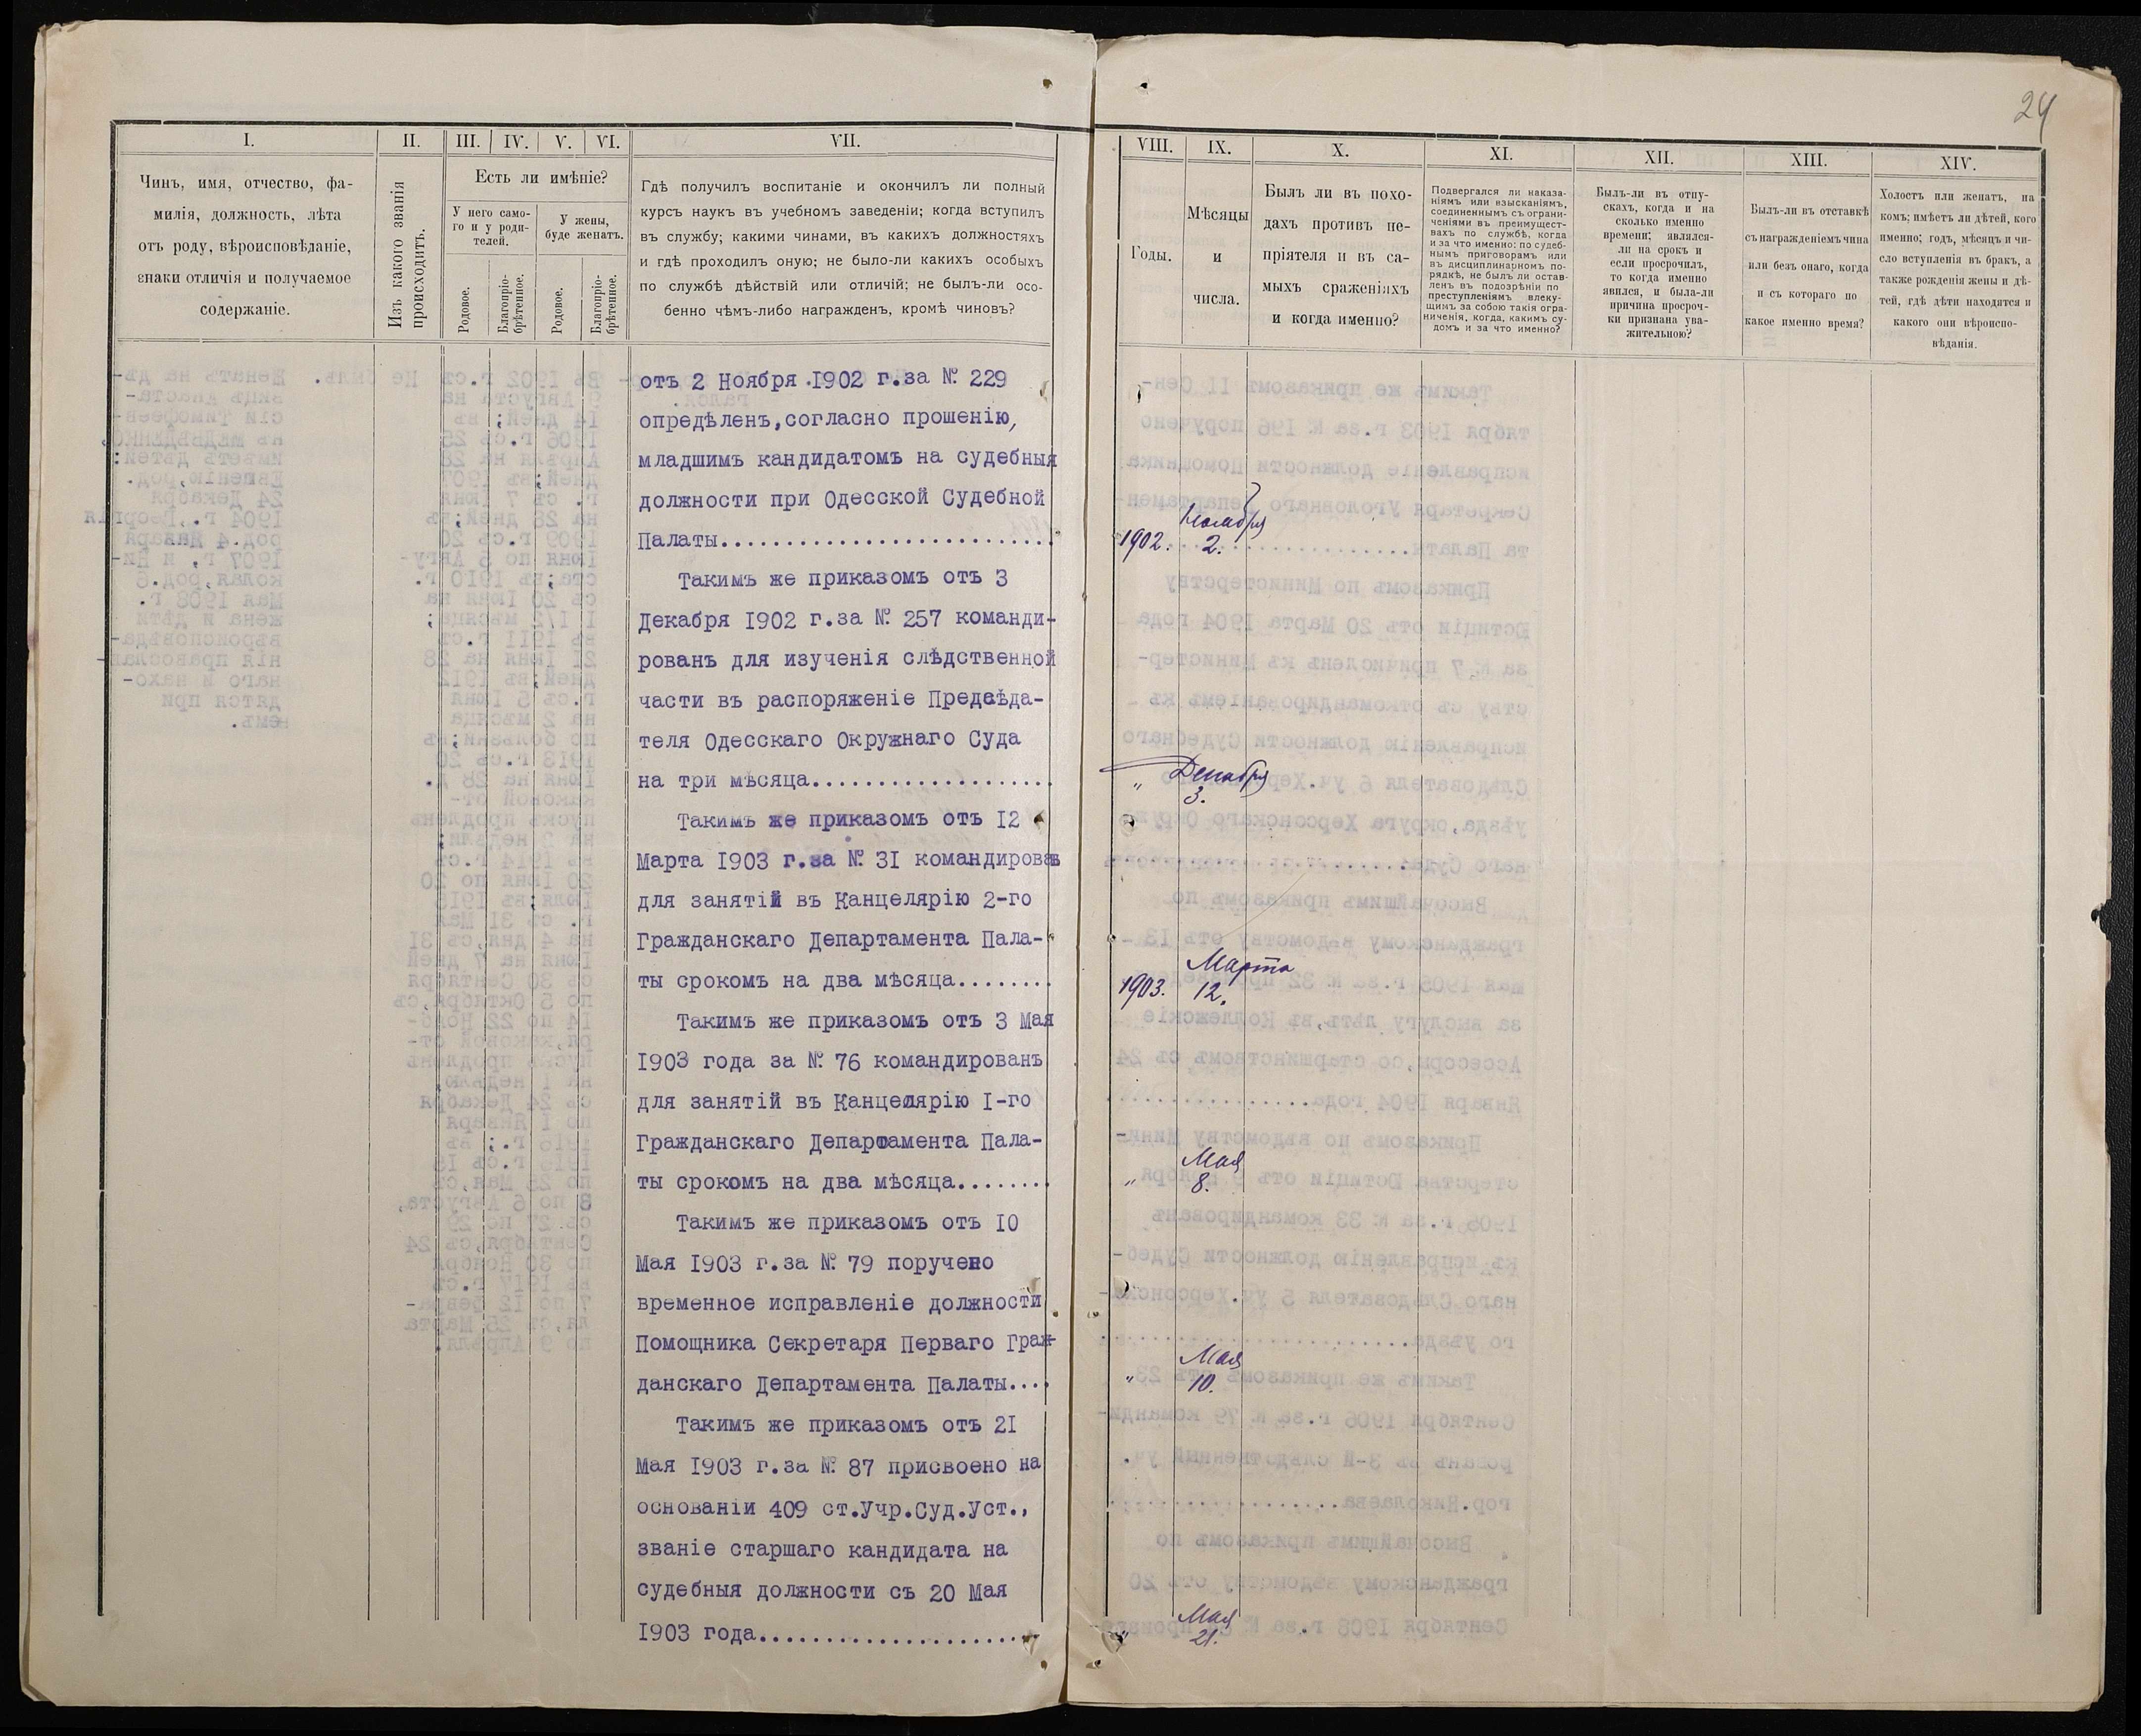 24
I.
II.
III.
IV.
V.
VI.
VII.
Чинъ, имя, отчество, фа-
милія, должность, лѣта
отъ роду, вѣроисповѣданіе,
знаки отличія и получаемое
содержаніе.
Изъ какого званія
происходитъ.
Есть ли имѣніе?
У него само-
го и у роди-
телей.
У жены,
буде женатъ.
Родовое.
Благопріо-
брѣтенное.
Родовое.
Благопріо-
брѣтенное.
Гдѣ получилъ воспитаніе и окончилъ ли полный
курсъ наукъ въ учебномъ заведеніи; когда вступилъ
въ службу; какими чинами, въ какихъ должностяхъ
и гдѣ проходилъ оную; не было-ли какихъ особыхъ
по службѣ дѣйствій или отличій; не былъ-ли осо-
бенно чѣмъ-либо награжденъ, кромѣ чиновъ?
отъ 2 Ноября 1902 г.за № 229
опредѣленъ,согласно прошенію,
младшимъ кандидатомъ на судебныя
должности при Одесской Судебной
Палаты..........................
Такимъ же приказомъ отъ 3
Декабря 1902 г.за № 257 команди-
рованъ для изученія слѣдственной
части въ распоряженіе Предсѣда-
теля Одесскаго Окружнаго Суда
на три мѣсяца...................
Такимъ же приказомъ отъ 12
Марта 1903 г.за № 31 командированъ
для занятій въ Канцелярію 2-го
Гражданскаго Департамента Пала-
ты срокомъ на два мѣсяца........
Такимъ же приказомъ отъ 3 Мая
1903 года за № 76 командированъ
для занятій въ Канцелярію I-го
Гражданскаго Департамента Пала-
ты срокомъ на два мѣсяца........
Такимъ же приказомъ отъ 10
Мая 1903 г.за № 79 поручено
временное исправленіе должности
Помощника Секретаря Перваго Граж-
данскаго Департамента Палаты....
Такимъ же приказомъ отъ 21
Мая 1903 г.за № 87 присвоено на
основаніи 409 ст.Учр.Суд.Уст.,
званіе старшаго кандидата на
судебныя должности съ 20 Мая
1903 года......................
VIII.
IX.
X.
XI.
XII.
XIII.
XIV.
Годы.
Мѣсяцы
и
числа.
Былъ ли въ похо-
дахъ противъ не-
пріятеля и въ са-
мыхъ сраженіяхъ
и когда именно?
Подвергался ли наказа-
ніямъ или взысканіямъ,
соединеннымъ съ ограни-
ченіями въ преимущест-
вахъ по службѣ, когда
и за что именно: по судеб-
нымъ приговорамъ или
въ дисциплинарномъ по-
рядкѣ, не былъ ли остав-
ленъ въ подозрѣніи по
преступленіямъ влеку-
щимъ за собою такія огра-
ниченія, когда, какимъ су-
домъ и за что именно?
Былъ-ли въ отпу-
скахъ, когда и на
сколько именно
времени; являлся-
ли на срокъ и
если просрочилъ,
то когда именно
явился, и была-ли
причина просроч-
ки признана ува-
жительною?
Былъ-ли въ отставкѣ
съ награжденіемъ чина
или безъ онаго, когда
и съ котораго по
какое именно время?
Холостъ или женатъ, на
комъ; имѣетъ ли дѣтей, кого
именно; годъ, мѣсяцъ и чи-
сло вступленія въ бракъ, а
также рожденія жены и дѣ-
тей, гдѣ дѣти находятся и
какого они вѣроиспо-
вѣданія.
Ноября
1902. 2.
Декабря
" 3.
Марта
1903. 12.
Мая
" 8.
Мая
" 10.
Мая
" 21.